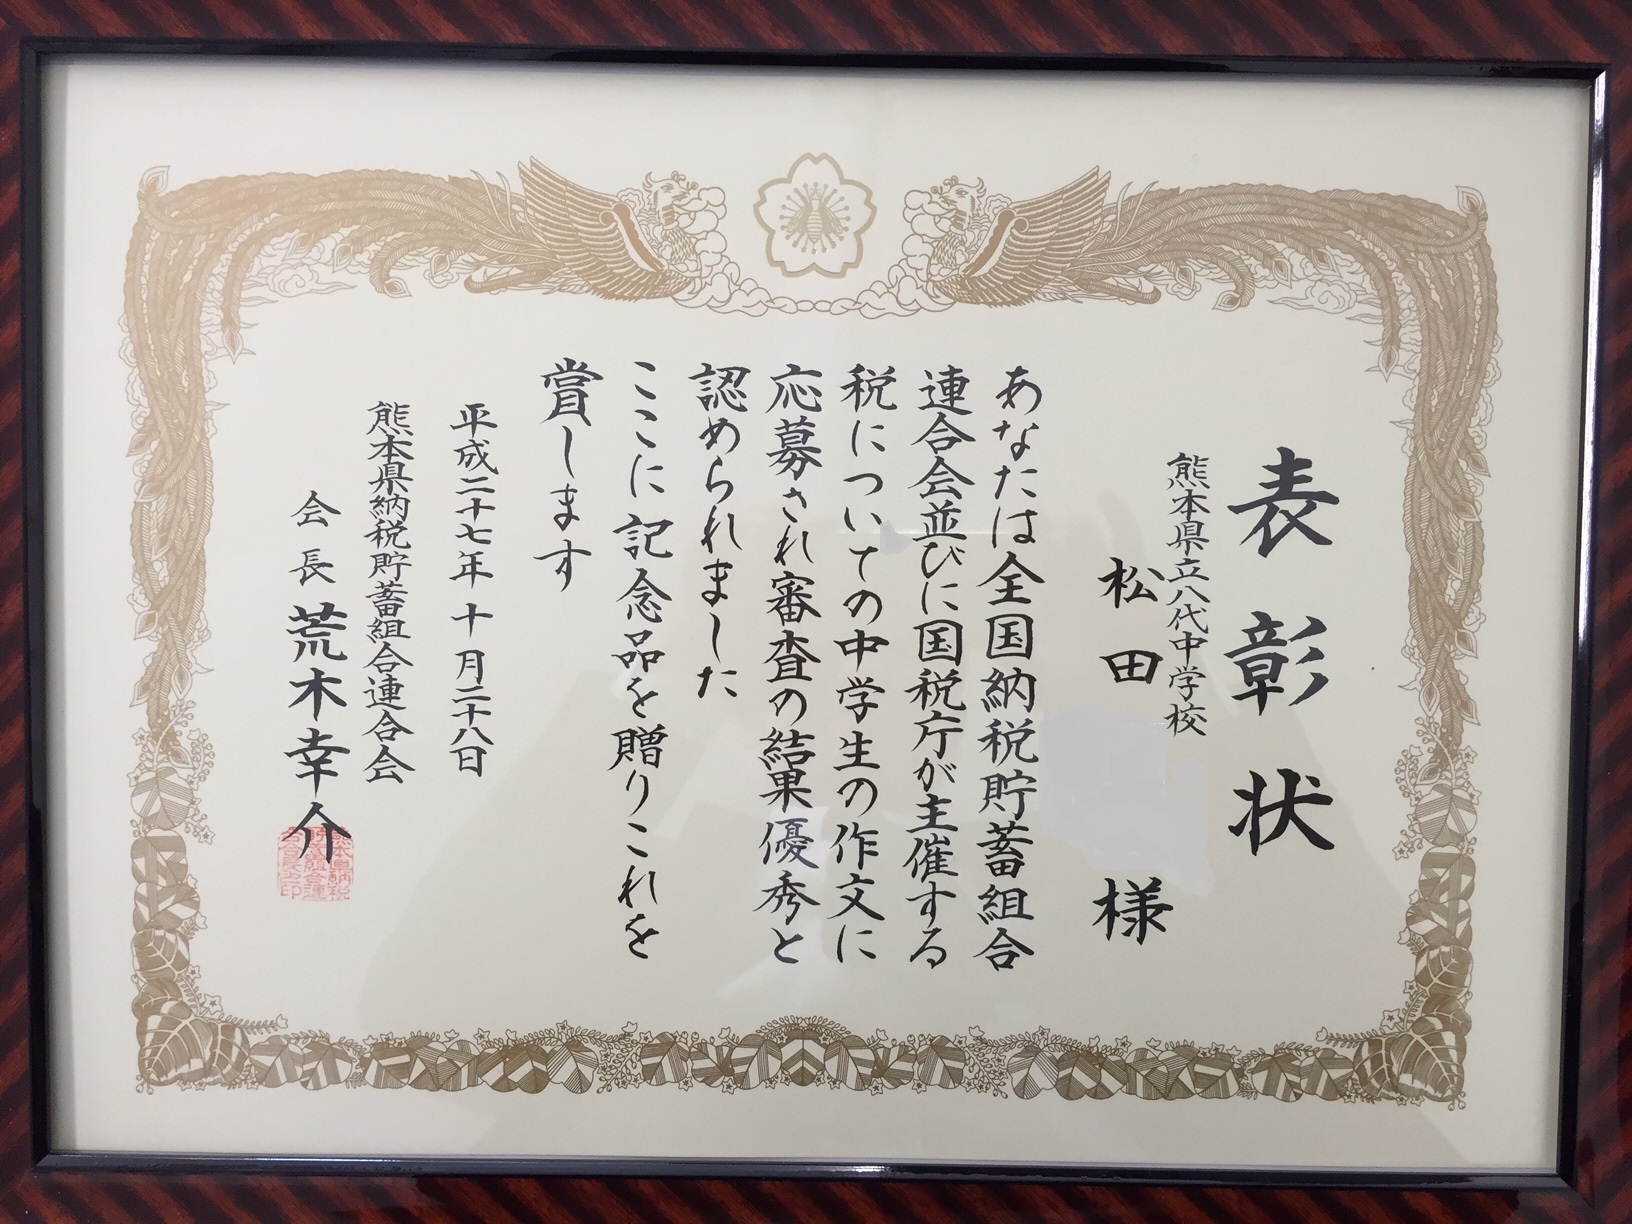 表彰状
熊本県立八代中学校
松田 様
あなたは全国納税貯蓄組合
連合会並びに国税庁が主催する
税についての中学生の作文に
応募され審査の結果優秀と
認められました
ここに記念品を贈りこれを
賞します
平成二十七年十月二十八日
熊本県納税貯蓄組合連合会
会長 荒木幸介